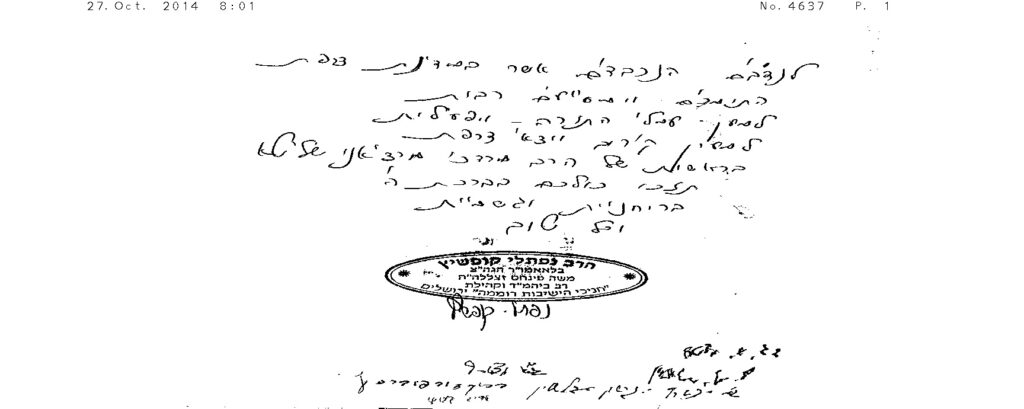 27. Oct. 2014 8:01 No. 4637 P. 1
לנדבים הנכבדים אשר במדינת צרפת
התומכים ומסייעים רבות
למען עמלי התורה - ופעילות
למען קירוב יוצאי צרפת
בראשות של הרב מרדכי שליטא
תזכו כולכם בברכת ה'
ברוחניות וגשמיות
וכל טוב
הרב נפתלי קופשיץ
בלאאמו"ר הגה"צ
משה פינחס זצללה"ה
רב ביהמ"ד וקהילת
"חניכי הישיבות רוממה" ירושלים
נפתלי קופשיץ